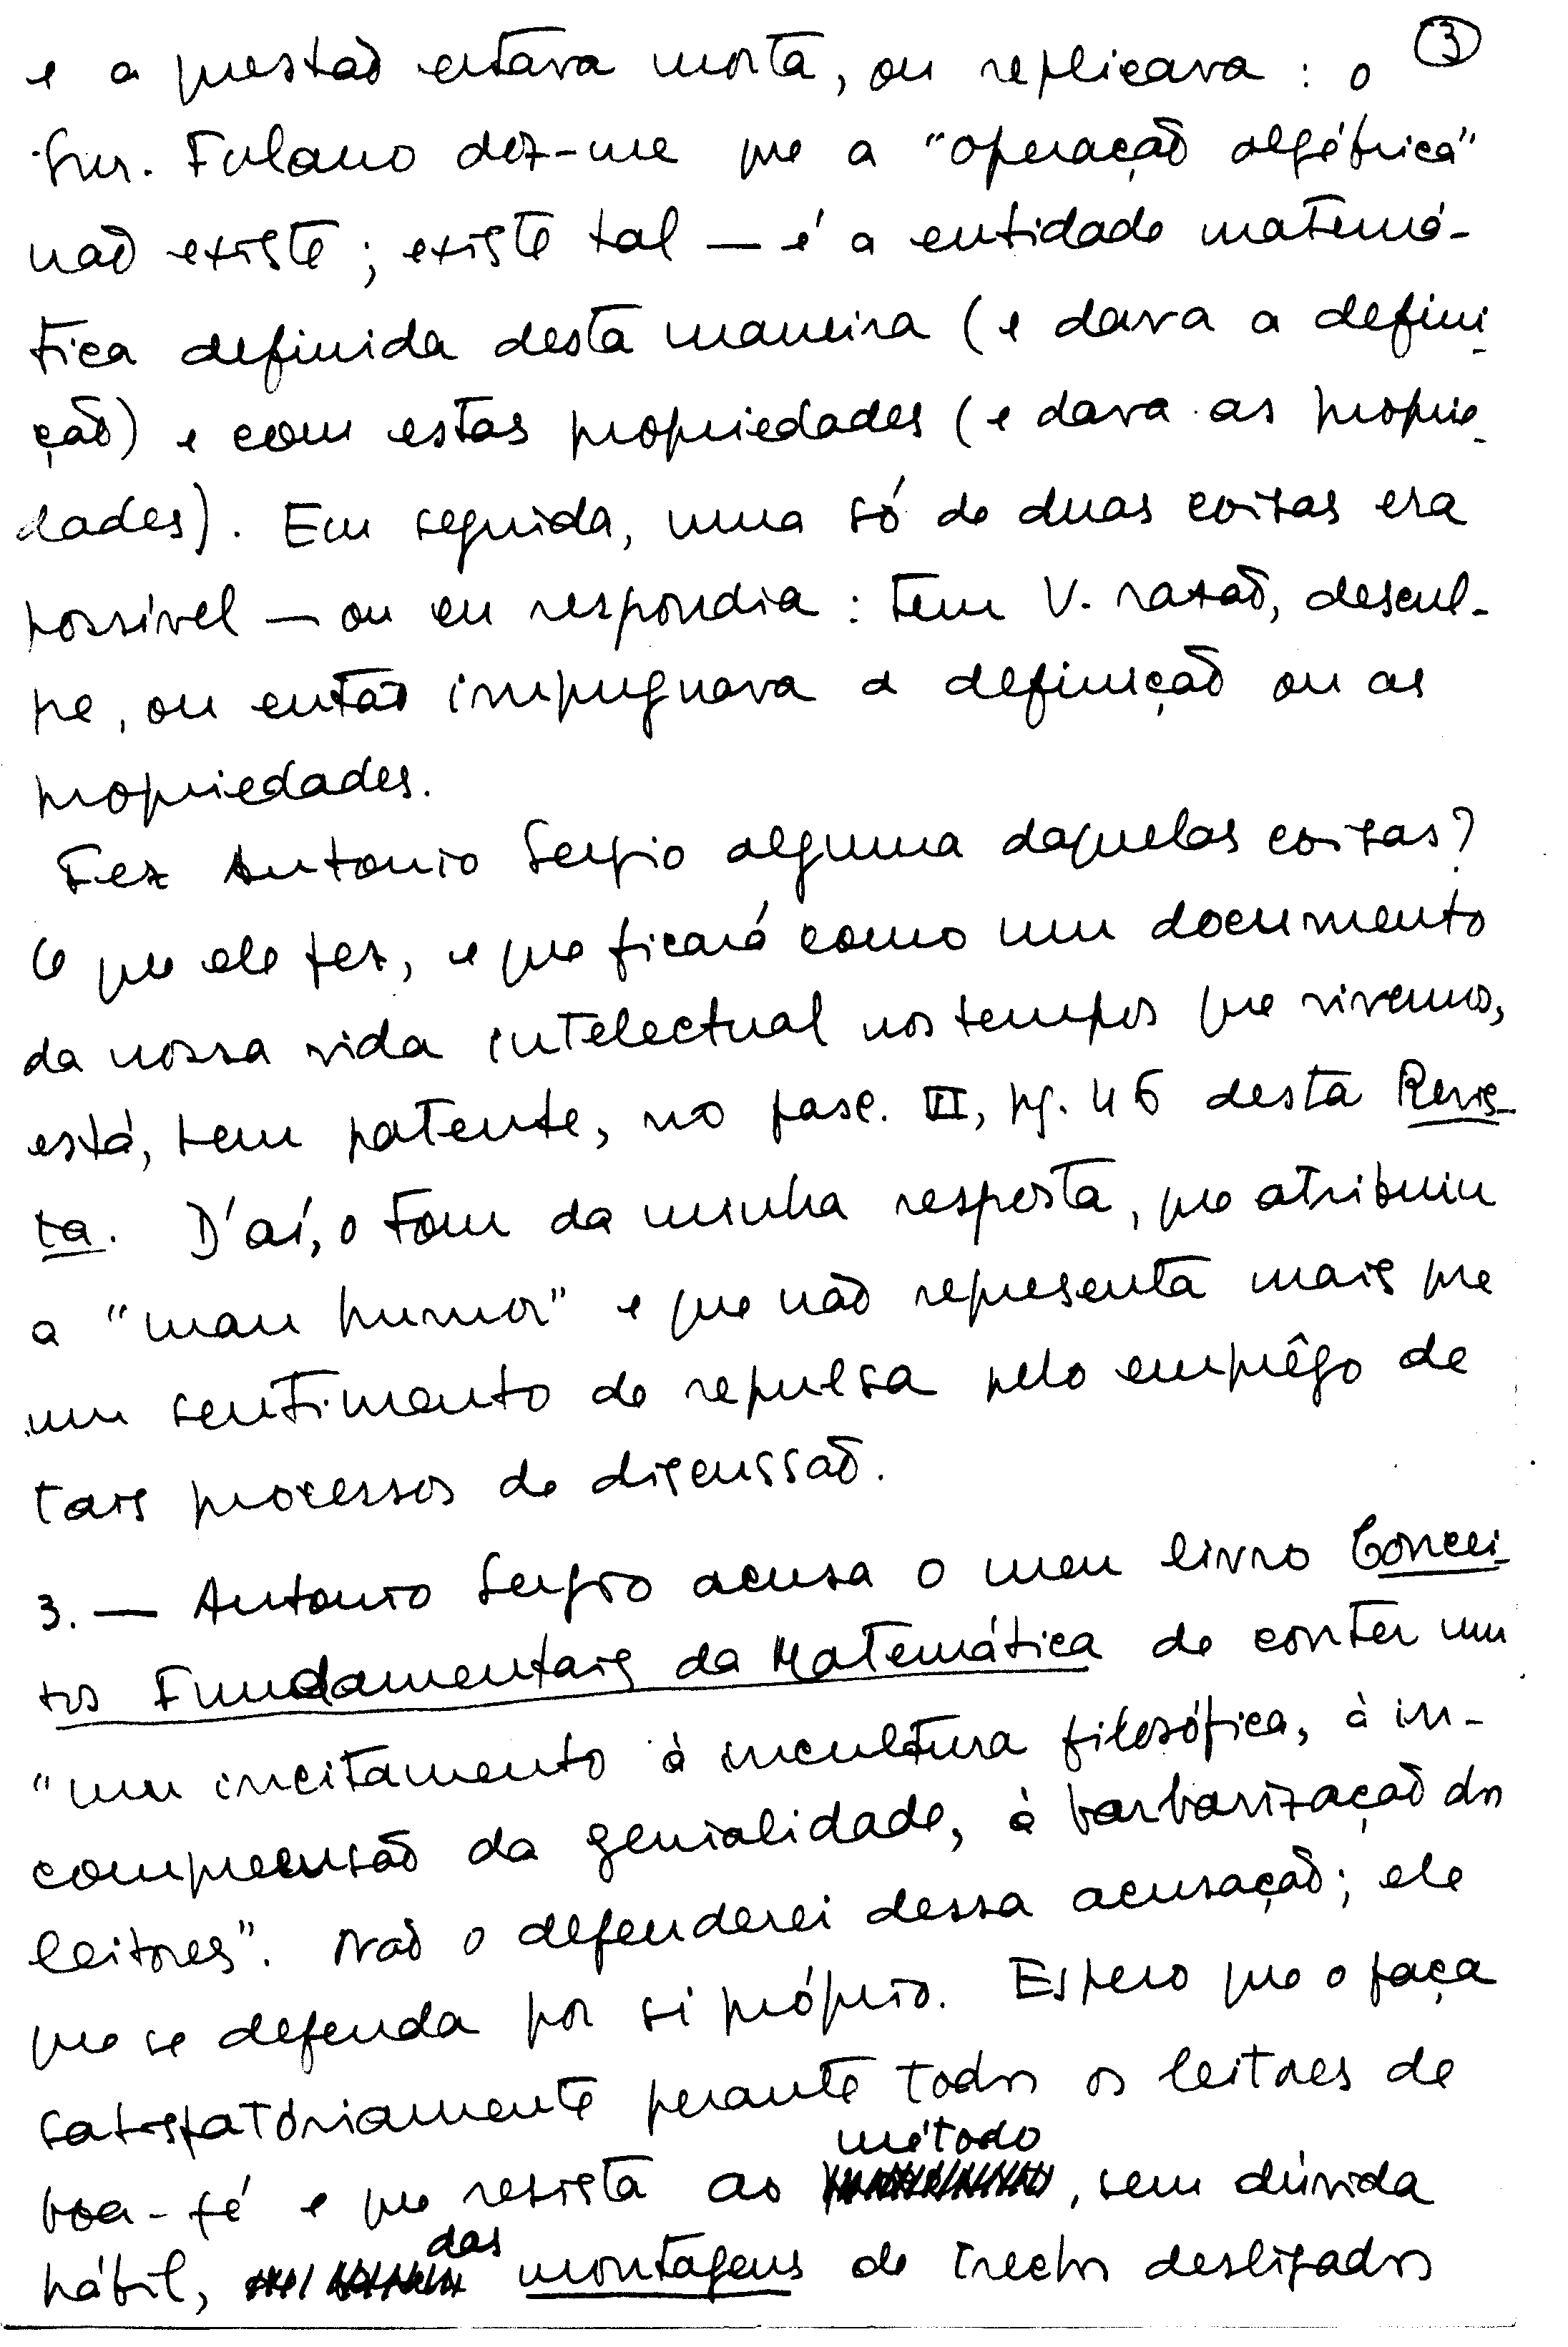 ③
e a questão estava morta, ou replicava : o
Snr. Fulano diz-me que a "operação algébrica"
não existe ; existe tal — é a entidade matemá-
tica definida desta maneira (e dava a defini-
ção) e com estas propriedades (e dava as proprie-
dades). Em seguida, uma só de duas coisas era
possível — ou eu respondia : tem V. razão, descul-
pe, ou então impugnava a definição ou as
propriedades.
Fez Antonio Sergio alguma daquelas coisas?
O que ele fez, e que ficará como um documento
da nossa vida intelectual nos tempos que vivemos,
está, bem patente, no fasc. VI, pg. 46 desta Revis-
ta. D'aí, o tom da minha resposta, que atribuiu
a "mau humor" e que não representa mais que
um sentimento de repulsa pelo emprêgo de
tais processos de discussão.
3. — Antonio Sergio acusa o meu livro Concei-
tos Fundamentais da Matemática de conter um
"um incitamento à incultura filosófica, à in-
compreensão da genialidade, à barbarização dos
leitores". Não o defenderei dessa acusação; ele
que se defenda por si próprio. Espero que o faça
satisfatóriamente perante todos os leitores de
boa-fé e que resista ao método, sem dúvida
hábil, das montagens de trechos desligados